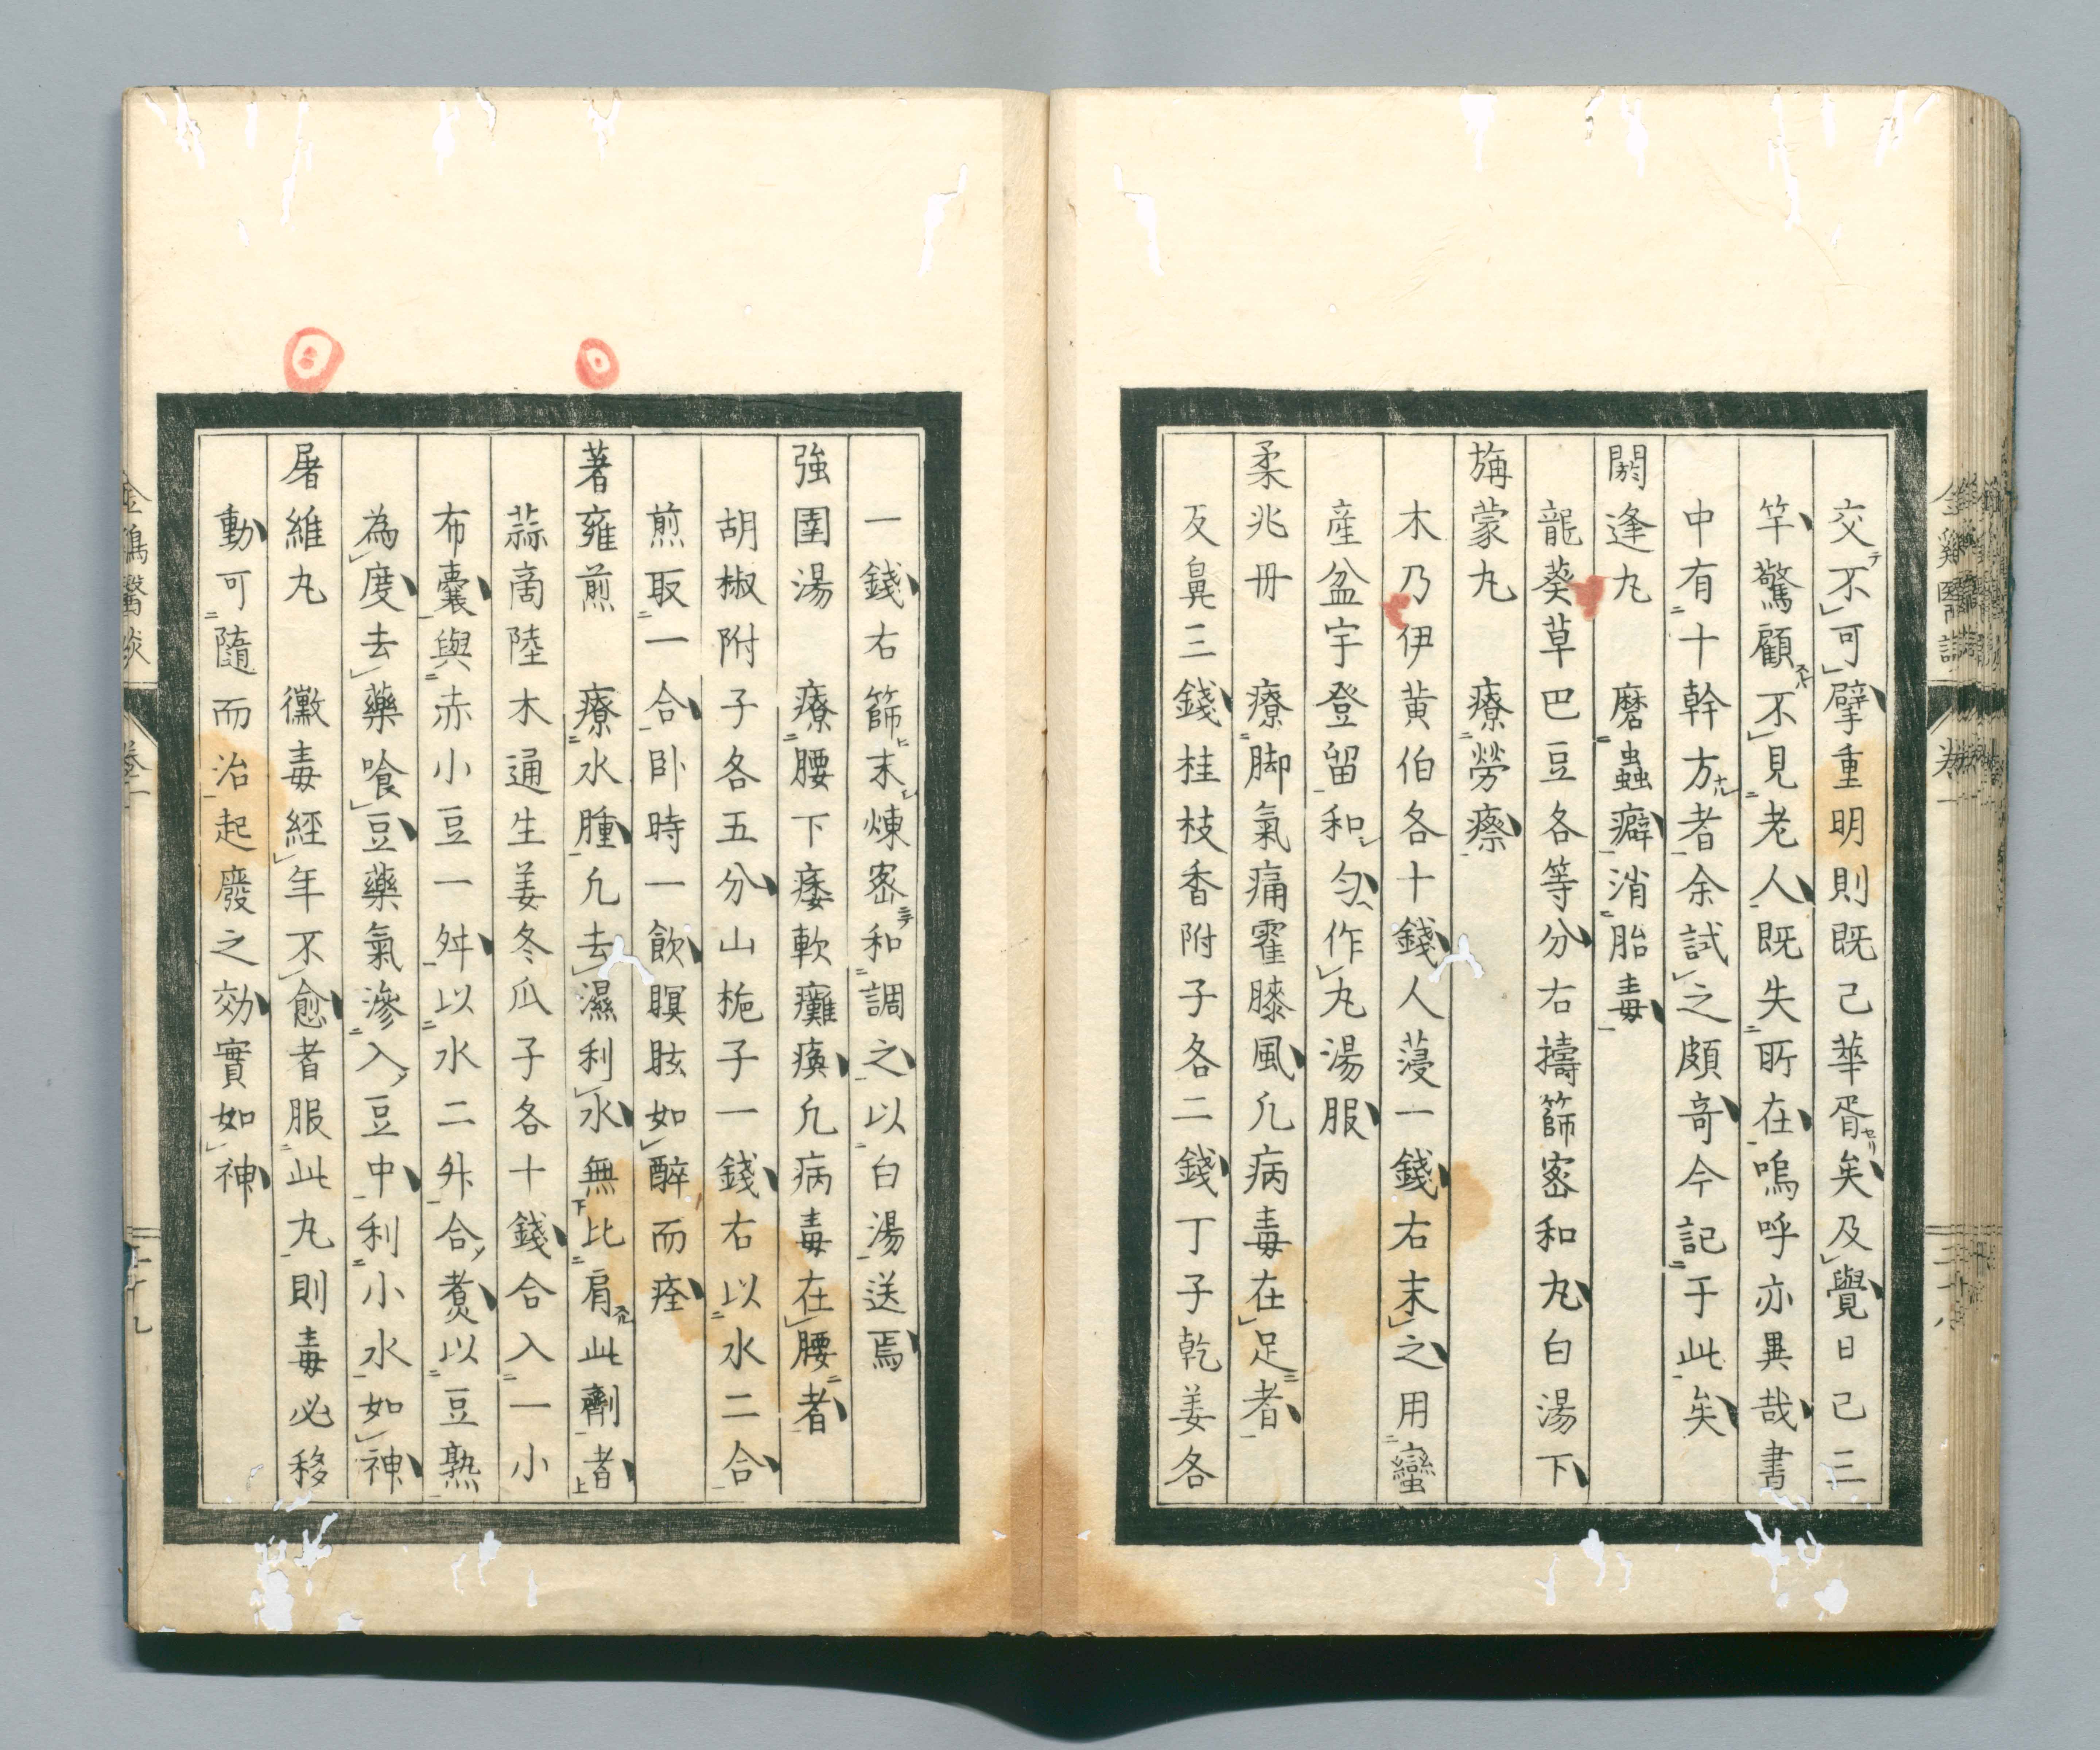 交不可擘重明則既己華胥矣及覺日已三
竿驚顧不見老人既失所在嗚呼亦異哉書
中有十幹方者余試之頗奇今記于此矣
閼逢丸　磨蟲癖消胎毒
龍葵草巴豆各等分右擣篩密和丸白湯下
旃蒙丸　療勞瘵
木乃伊黄伯各十錢人蓡一錢右末之用蠻
産盆宇登留和匀作丸湯服
柔兆冊　療脚氣痛霍膝風凢病毒在足者
反鼻三錢桂枝香附子各二錢丁子乾姜各
一錢右篩末煉密和調之以白湯送焉
強圉湯　療腰下痿軟癱瘓凢病毒在腰者
胡椒附子各五分山梔子一錢右以水二合
煎取一合卧時一飲瞑眩如醉而痊
著雍煎　療水腫凢去濕利水無比肩此劑者
蒜商陸木通生姜冬瓜子各十錢合入一小
布嚢與赤小豆一舛以水二舛合煑以豆熟
為度去藥喰豆藥氣滲入豆中利小水如神
屠維丸　黴毒經年不愈者服此丸則毒必移
動可隨而治起廢之効實如神
金鷄醫談
卷一
二十九